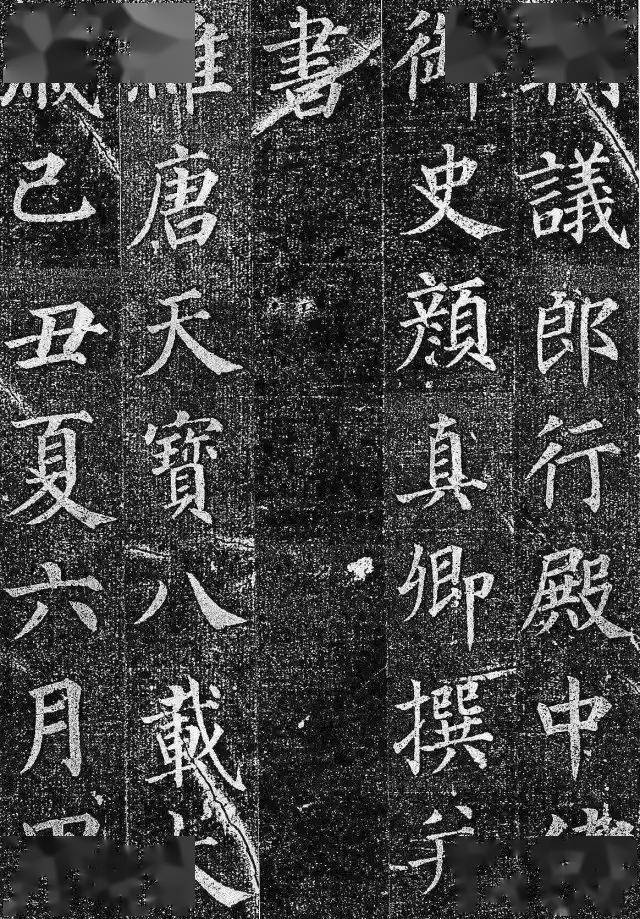 議郎行殿中
御史顏真卿撰弁
書
維唐天寶八載
己丑夏六月